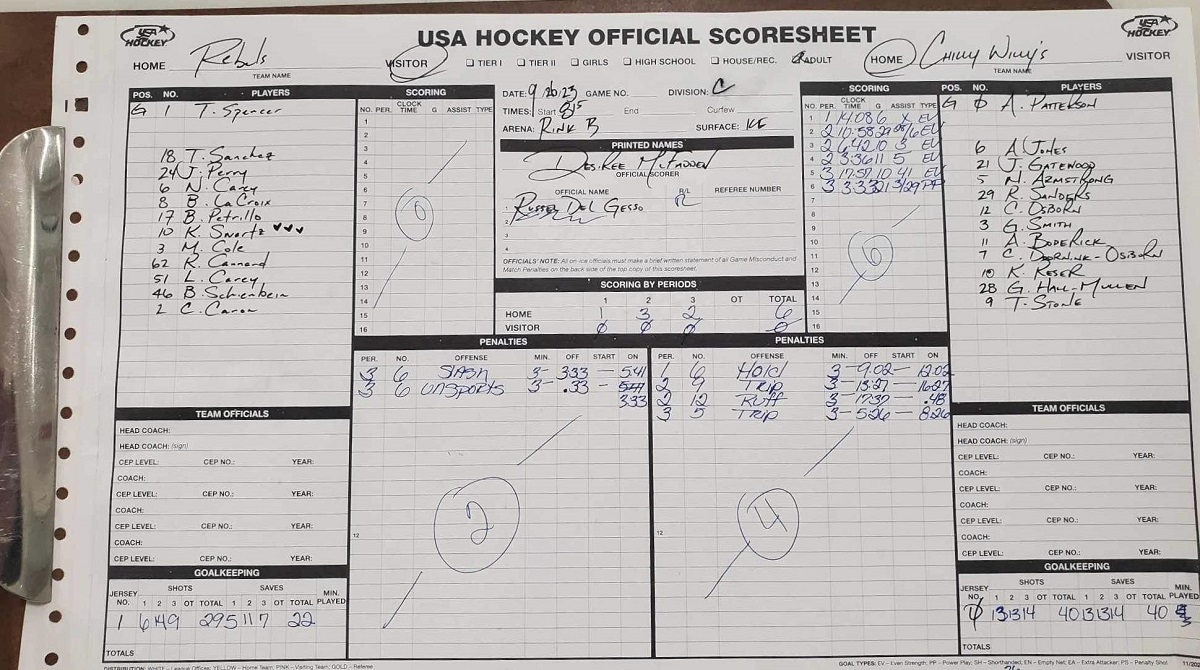 USA HOCKEY
USA HOCKEY OFFICIAL SCORESHEET
USA HOCKEY
HOME Rebels VISITOR
TEAM NAME
TIER I TIER II GIRLS HIGH SCHOOL HOUSE/REC. ADULT
HOME Chilly Willy's VISITOR
TEAM NAME
POS. NO. PLAYERS
G 1 T. Spencer
18 T. Sanchez
24 J. Perry
6 N. Carey
8 B. LaCroix
17 B. Petrillo
10 K. Swartz
3 M. Cole
62 R. Cannard
51 L. Carey
46 B. Schienbein
2 C. Caron
SCORING
NO. PER. CLOCK TIME G ASSIST TYPE
1
2
3
4
5
6
7
8
9
10
11
12
13
14
15
16
0
DATE: 9.26.23 GAME NO. DIVISION: C
TIMES: Start 815 End Curfew
ARENA: Rink B SURFACE: ICE
PRINTED NAMES
Desiree McFadden
OFFICIAL SCORER
OFFICIAL NAME R/L REFEREE NUMBER
1 Russel Del Gesso R
2
3
4
OFFICIALS' NOTE: All on-ice officials must make a brief written statement of all Game Misconduct and
Match Penalties on the back side of the top copy of this scoresheet.
SCORING BY PERIODS
1 2 3 OT TOTAL
HOME 1 3 2 6
VISITOR 0 0 0 0
SCORING
NO. PER. CLOCK TIME G ASSIST TYPE
1 1 14:08 6 X EV
2 2 10:58 29 28/6 EV
3 2 6:42 10 3 EV
4 2 3:36 11 5 EV
5 3 17:57 10 41 EV
6 3 3:33 21 3/29 PP
7
8
9
10
11
12
13
14
15
16
6
POS. NO. PLAYERS
G 0 A. Patterson
6 A. Jones
21 J. Gatewood
5 N. Armstrong
29 R. Sanders
12 C. Osborn
3 G. Smith
11 A. Boderick
7 C. Doornink-Osborn
10 K. Keser
28 G. Hall-Mullen
9 T. Stone
PENALTIES
PER. NO. OFFENSE MIN. OFF START ON
3 6 Slash 3- 333 - 541
3 6 Unsports 3- .33 -
333
12
2
PENALTIES
PER. NO. OFFENSE MIN. OFF START ON
1 6 Hold 3- 9:02 - 12:02
2 9 Trip 3- 13:27 - 16:27
2 12 Ruff 3- 17:37 - .48
3 5 Trip 3- 5:26 - 8:26
12
4
TEAM OFFICIALS
HEAD COACH:
HEAD COACH: (sign)
CEP LEVEL: CEP NO.: YEAR:
COACH:
CEP LEVEL: CEP NO.: YEAR:
COACH:
CEP LEVEL: CEP NO.: YEAR:
COACH:
CEP LEVEL: CEP NO.: YEAR:
GOALKEEPING
JERSEY NO. SHOTS SAVES MIN. PLAYED
1 2 3 OT TOTAL 1 2 3 OT TOTAL
1 6 14 9 29 5 11 7 22
TOTALS
TEAM OFFICIALS
HEAD COACH:
HEAD COACH: (sign)
CEP LEVEL: CEP NO.: YEAR:
COACH:
CEP LEVEL: CEP NO.: YEAR:
COACH:
CEP LEVEL: CEP NO.: YEAR:
COACH:
CEP LEVEL: CEP NO.: YEAR:
GOALKEEPING
JERSEY NO. SHOTS SAVES MIN. PLAYED
1 2 3 OT TOTAL 1 2 3 OT TOTAL
0 13 13 14 40 13 13 14 40
TOTALS
DISTRIBUTION: WHITE – League Offices; YELLOW – Home Team; PINK – Visiting Team; GOLD – Referee
GOAL TYPES: EV – Even Strength; PP – Power Play; SH – Shorthanded; EN – Empty Net; EA – Extra Attacker; PS – Penalty Shot